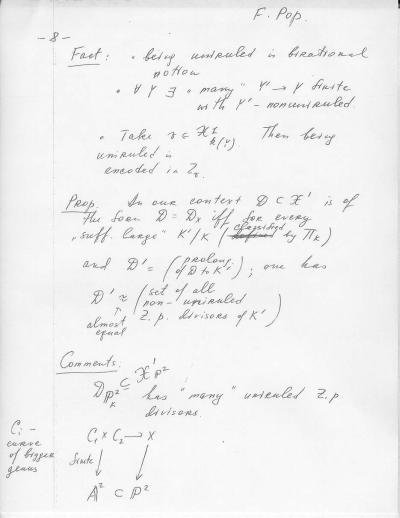 F. Pop.
-8-
Fact: • being uniruled is birational
notion
• ∀ Y ∃ "many" Y' → Y finite
with Y' - nonuniruled.
• Take γ ∈ 𝒳¹ k(Y). Then being
uniruled is
encoded in Zγ.
Prop. In our context D ⊂ 𝒳¹ is of
the form D = D_X iff for every
"suff. large" K'/K (classified by Π_K)
and D' = (prolong. of D to K'); one has
D' ≈ (set of all
non-uniruled
Z.p. divisors of K')
↑
almost
equal
Comments:
D_ℙ² ⊂ 𝒳¹_ℙ² has "many" uniruled Z.p.
divisors.
C_i -
curve
of bigger
genus
C₁ × C₂ → X
finite ↓ ↓
𝔸² ⊂ ℙ²